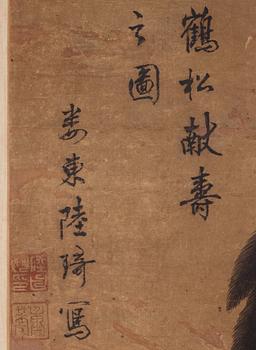 鶴松献壽
之圖
婁東陸琦寫